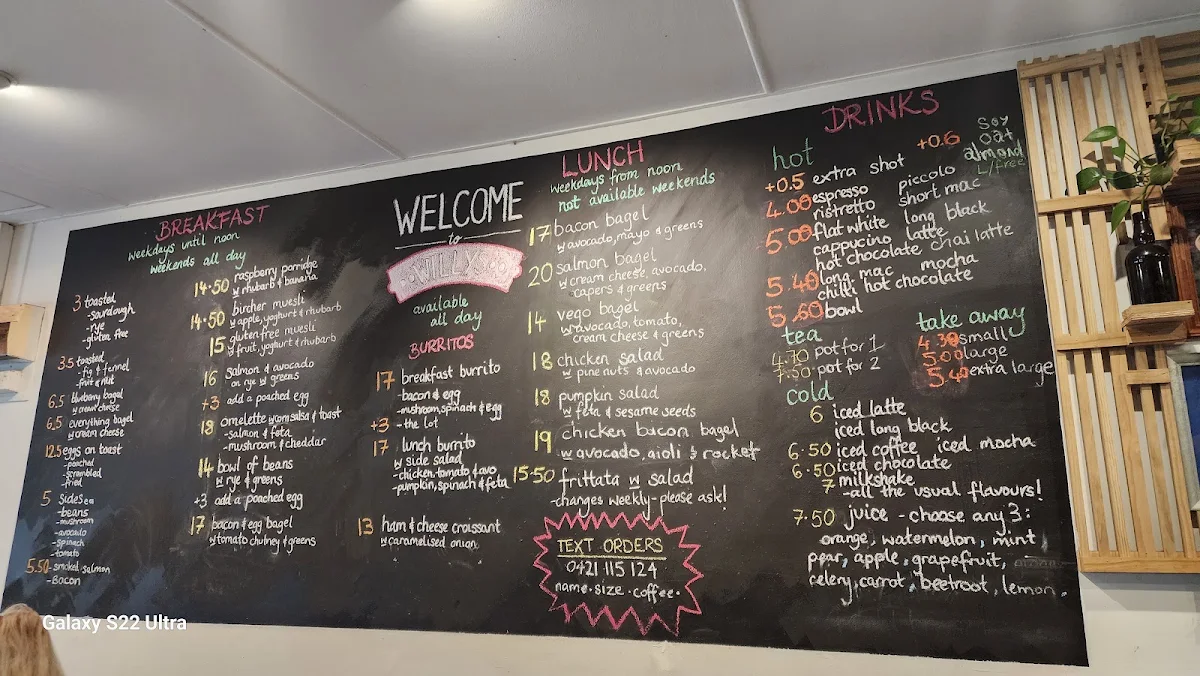 BREAKFAST
weekdays until noon
weekends all day
3 toasted
-sourdough
-rye
-gluten free
3.5 toasted
-fig & fennel
-fruit & nut
6.5 blueberry bagel
w cream cheese
6.5 everything bagel
w cream cheese
12.5 eggs on toast
-poached
-scrambled
-fried
5 Sides ea
-beans
-mushroom
-avocado
-spinach
-tomato
5.50 -smoked salmon
-bacon
14.50 raspberry porridge
w rhubarb & banana
14.50 bircher muesli
w apple, yoghurt & rhubarb
15 gluten free muesli
w fruit, yoghurt & rhubarb
16 salmon & avocado
on rye w greens
+3 add a poached egg
18 omelette w corn salsa & toast
-salmon & feta
-mushroom & cheddar
14 bowl of beans
w rye & greens
+3 add a poached egg
17 bacon & egg bagel
w tomato chutney & greens
WELCOME
to
WILLY & CO
available
all day
BURRITOS
17 breakfast burrito
-bacon & egg
-mushroom, spinach & egg
+3 -the lot
17 lunch burrito
w side salad
-chicken, tomato & avo
-pumpkin, spinach & feta
13 ham & cheese croissant
w caramelised onion
LUNCH
weekdays from noon
not available weekends
17 bacon bagel
w avocado, mayo & greens
20 salmon bagel
w cream cheese, avocado,
capers & greens
14 vego bagel
w avocado, tomato,
cream cheese & greens
18 chicken salad
w pine nuts & avocado
18 pumpkin salad
w feta & sesame seeds
19 chicken bacon bagel
w avocado, aioli & rocket
15.50 frittata w salad
-changes weekly - please ask!
TEXT ORDERS
0421 115 124
name · size · coffee ·
DRINKS
hot
+0.6 soy
oat
almond
L/free
+0.5 extra shot
4.00 espresso piccolo
ristretto short mac
5.00 flat white long black
cappucino latte
hot chocolate chai latte
5.40 long mac mocha
chilli hot chocolate
5.60 bowl
tea
4.70 pot for 1
7.50 pot for 2
take away
4.30 small
5.00 large
5.40 extra large
cold
6 iced latte
iced long black
6.50 iced coffee iced mocha
6.50 iced chocolate
7 milkshake
-all the usual flavours!
7.50 juice - choose any 3:
orange, watermelon, mint
pear, apple, grapefruit,
celery, carrot, beetroot, lemon.
Galaxy S22 Ultra